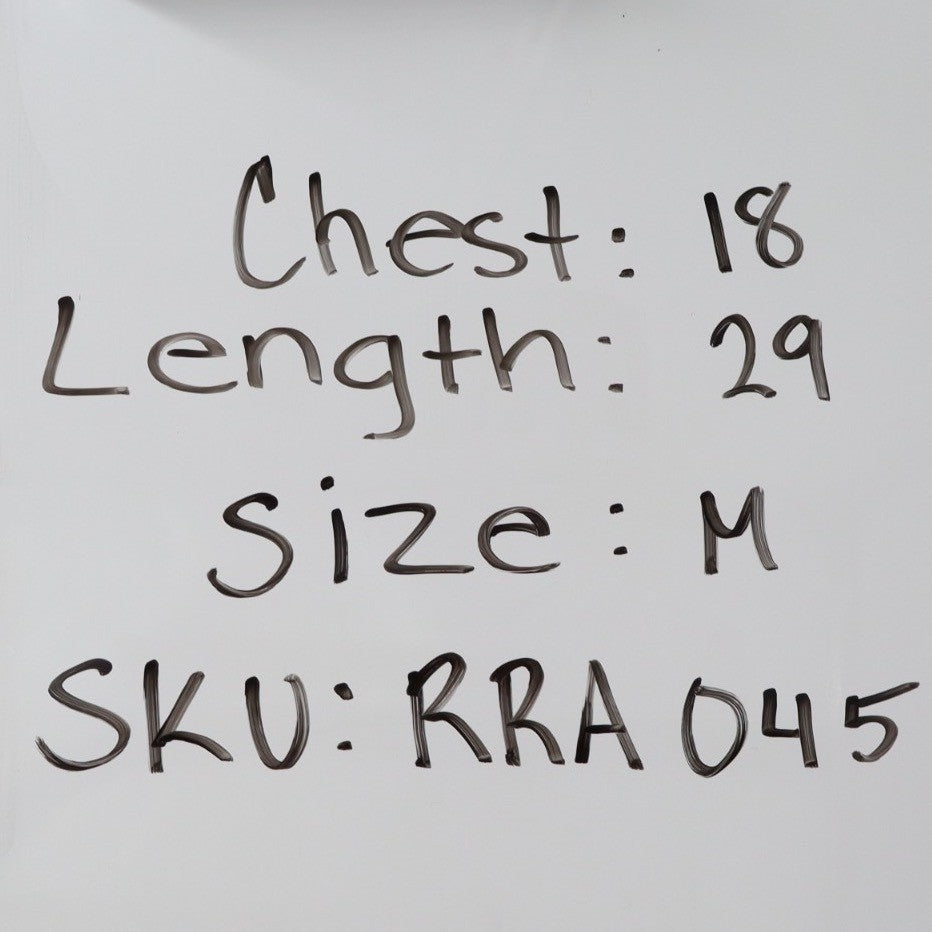 Chest: 18
Length: 29
Size: M
SKU: RRA 045